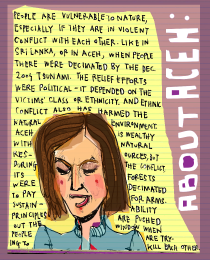 PEOPLE ARE VULNERABLE TO NATURE,
ESPECIALLY IF THEY ARE IN VIOLENT
CONFLICT WITH EACH OTHER. LIKE IN
SRI LANKA, OR IN ACEH, WHEN PEOPLE
THERE WERE DECIMATED BY THE DEC.
2004 TSUNAMI. THE RELIEF EFFORTS
WERE POLITICAL - IT DEPENDED ON THE
VICTIMS' CLASS OR ETHNICITY. AND ETHNIC
CONFLICT ALSO HAS HARMED THE
NATURAL ENVIRONMENT.
ACEH IS WEALTHY
WITH NATURAL
RES- OURCES, BUT
DURING THE CONFLICT,
ITS FORESTS
WERE DECIMATED
TO PAY FOR ARMS.
SUSTAIN- ABILITY
PRINCIPLES ARE PUSHED
OUT THE WINDOW WHEN
PEOPLE ARE TRY-
ING TO KILL EACH OTHER.
ABOUT ACEH: